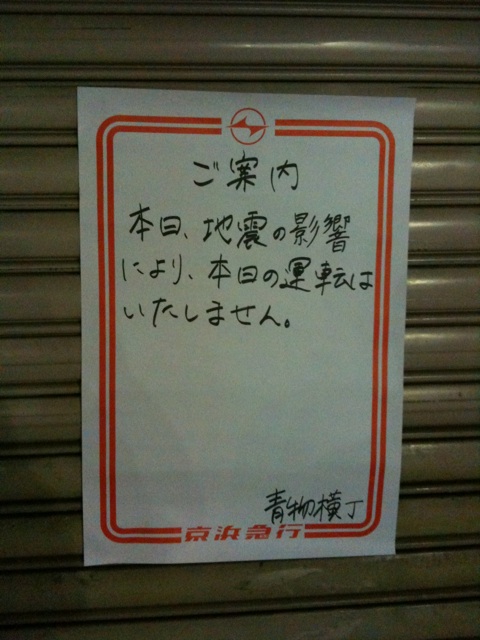 ご案内
本日、地震の影響
により、本日の運転は
いたしません。
青物横丁
京浜急行